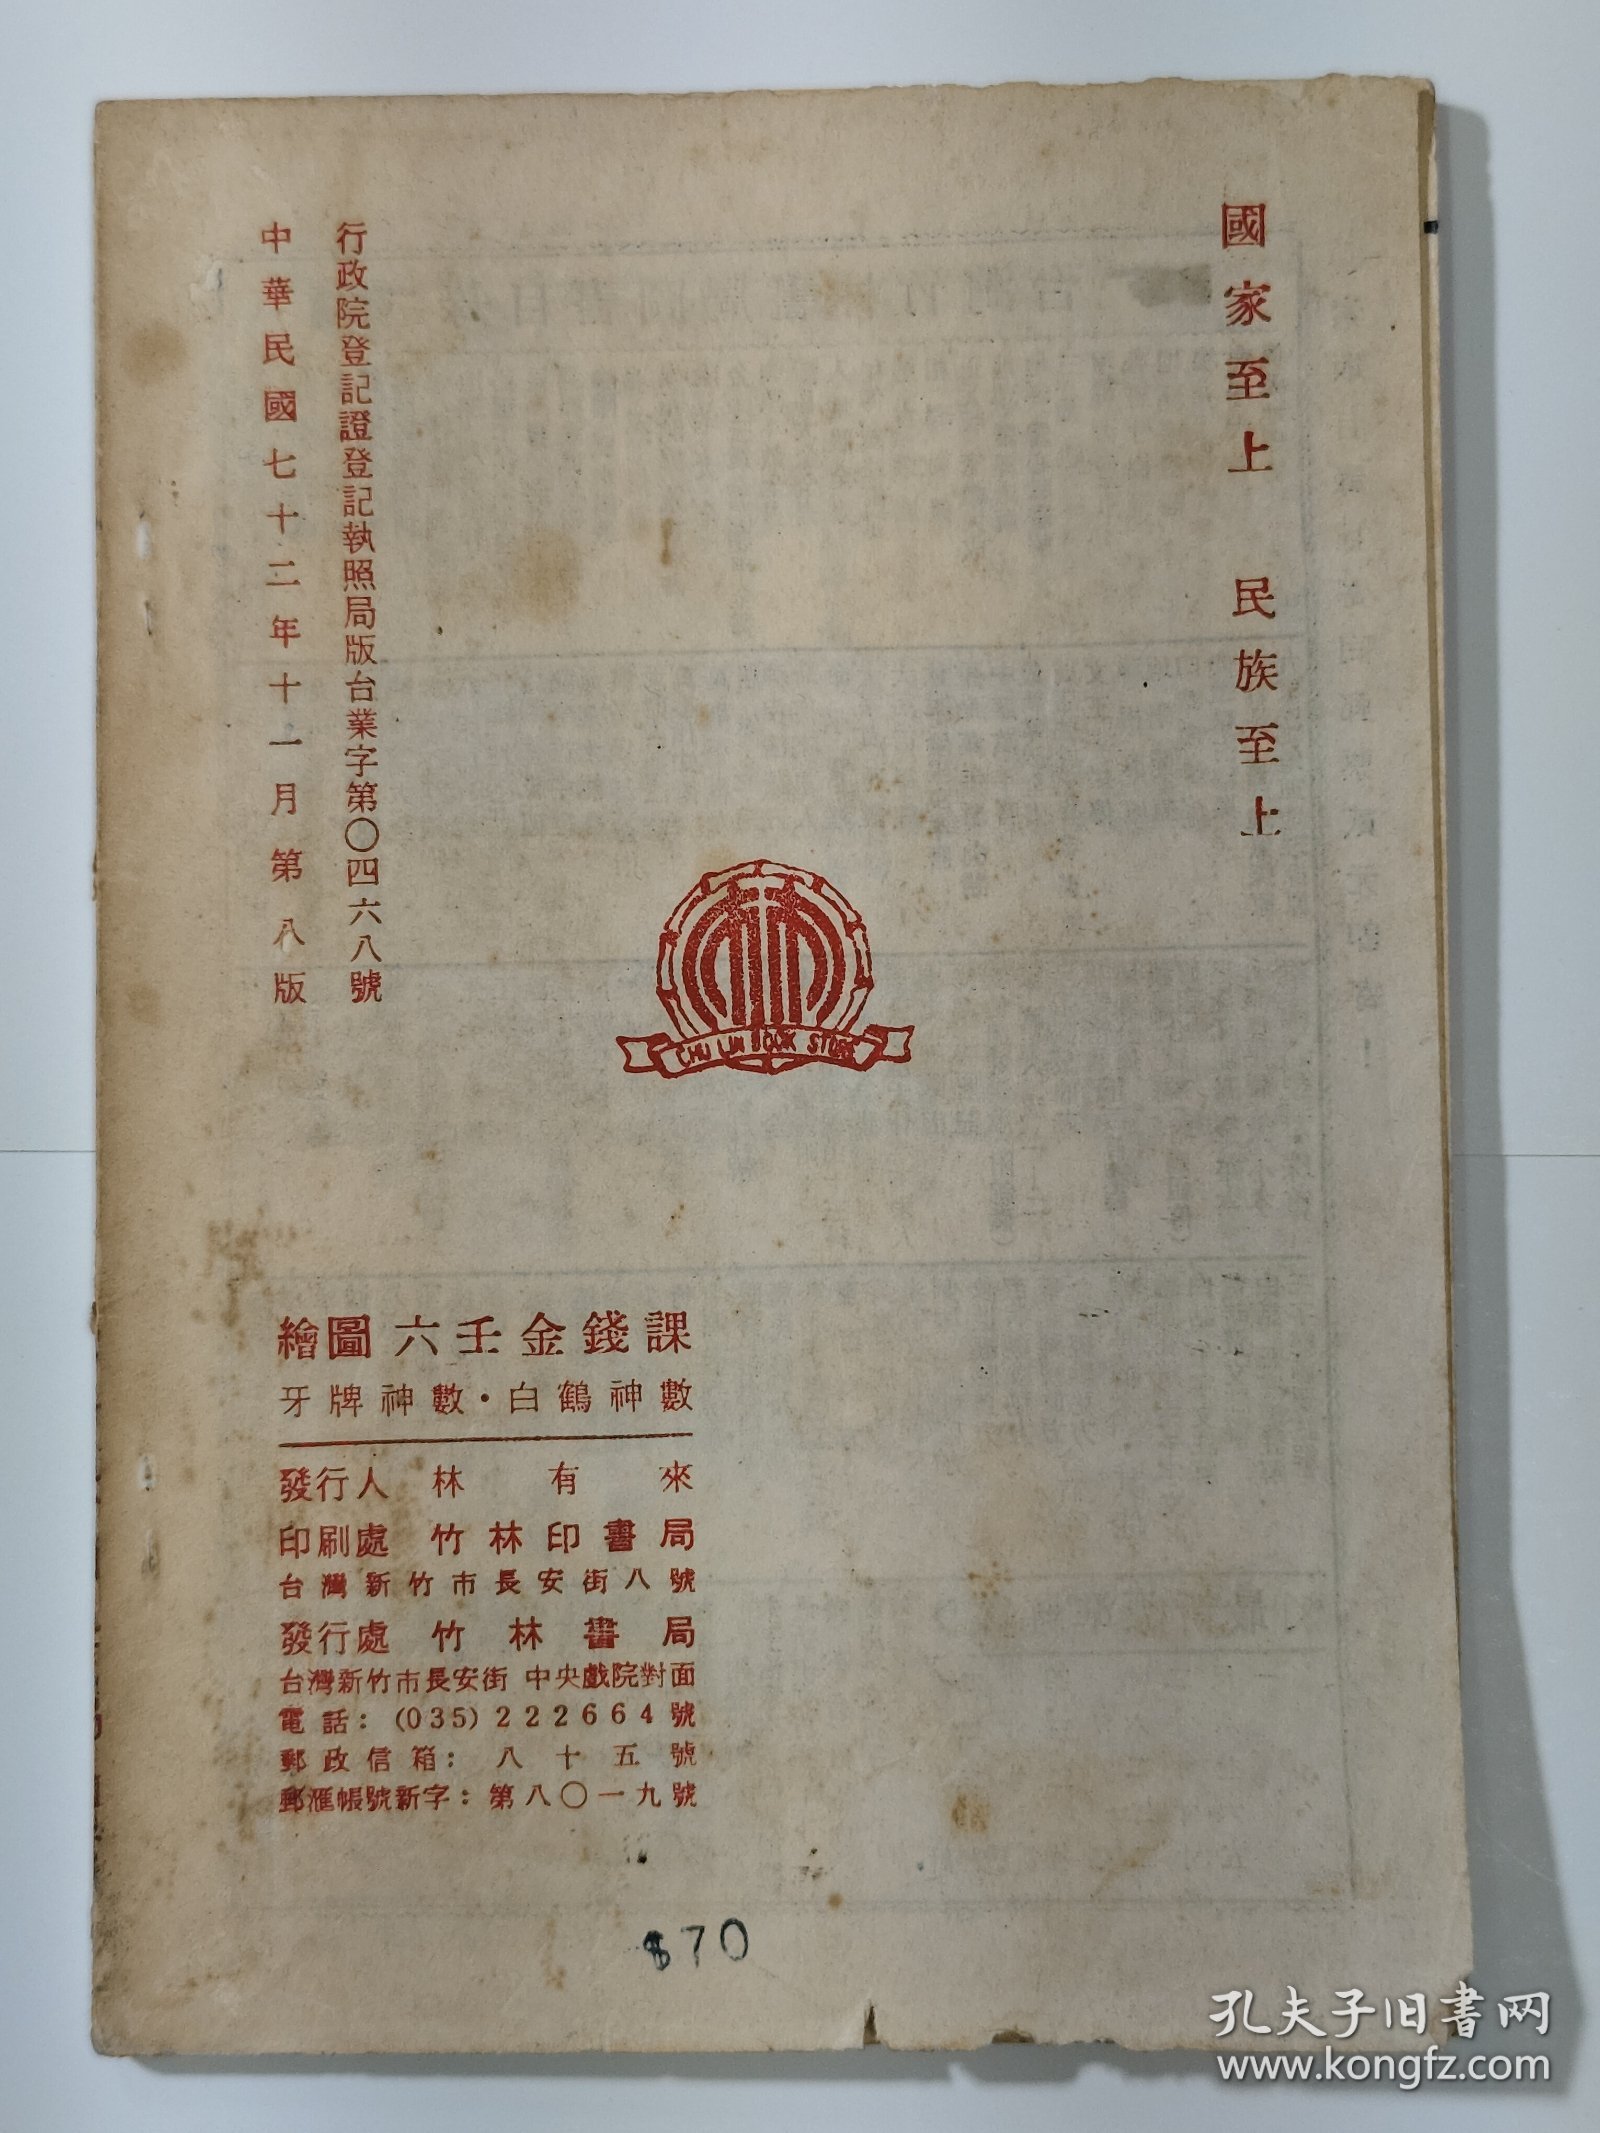 國家至上 民族至上
行政院登記證登記執照局版台業字第〇四六八號
中華民國七十二年十一月第八版
CHU LIN BOOK STORE
繪圖六壬金錢課
牙牌神數・白鶴神數
發行人 林有來
印刷處 竹林印書局
台灣新竹市長安街八號
發行處 竹林書局
台灣新竹市長安街 中央戲院對面
電話：(035)222664號
郵政信箱：八十五號
郵滙帳號新字：第八〇一九號
$70
孔夫子旧書网
www.kongfz.com